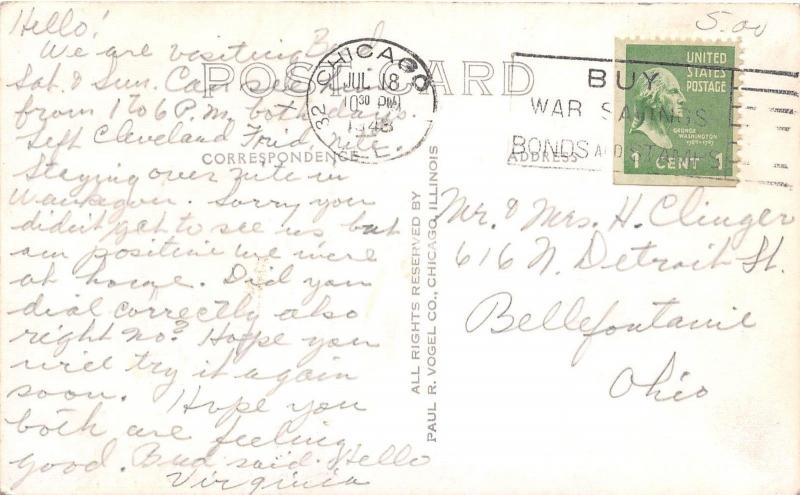 5.00
Hello!
We are visiting Bud
Sat. & Sun. Can see
from 1 to 6 P.M. both days.
Left Cleveland Frid. nite.
Staying over nite in
Waukegan. Sorry you
didn't get to see us but
am positive we were
at home. Did you
dial correctly also
right no? Hope you
will try it again
soon. Hope you
both are feeling
good. Bud said Hello
Virginia
POST CARD
CORRESPONDENCE
ADDRESS
CHICAGO
32
JUL 18
10 30 PM
BUY
WAR SAVINGS
BONDS AND STAMPS
UNITED
STATES
POSTAGE
GEORGE
WASHINGTON
1789-1797
1 CENT 1
ALL RIGHTS RESERVED BY
PAUL R. VOGEL CO., CHICAGO, ILLINOIS
Mr. & Mrs. H. Clinger
616 N. Detroit St.
Bellefontaine
Ohio